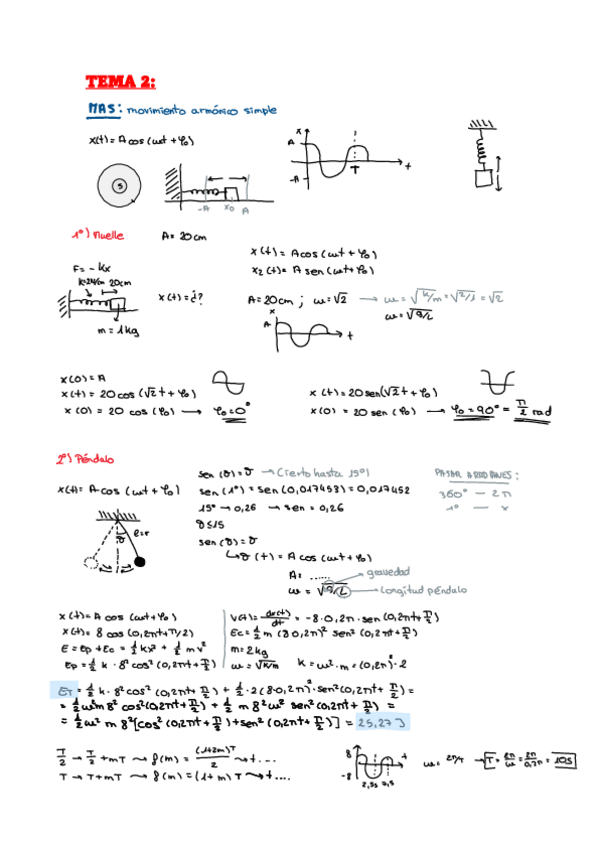 TEMA 2:
MAS: movimiento armónico simple
x(t) = A cos (ωt + φ₀)
x
A
-A
T
t
S
-A x₀ A
1º) Muelle A = 20 cm
x(t) = A cos (ωt + φ₀)
x₂(t) = A sen (ωt + φ₀)
F = -kx
k=2N/m 20cm
m = 1 kg
x(t) = ¿?
A = 20 cm ; ω = √2 → ω = √k/m = √2/1 = √2
ω = √g/L
x
A
t
x(0) = A
x(t) = 20 cos (√2 t + φ₀)
x(0) = 20 cos (φ₀) → φ₀ = 0°
x(t) = 20 sen (√2 t + φ₀)
x(0) = 20 sen (φ₀) → φ₀ = 90° = π/2 rad
2º) Péndulo
x(t) = A cos (ωt + φ₀)
l = r
sen (θ) = θ → (cierto hasta 15º)
sen (1º) = sen (0,017453) = 0,017452
15º → 0,26 → sen = 0,26
θ ≤ 15
sen (θ) = θ
θ(t) = A cos (ωt + φ₀)
A = ......
ω = √g/L
gravedad
Longitud péndulo
PASAR A RADIANES:
360° — 2π
1° — x
x(t) = A cos (ωt + φ₀)
x(t) = 8 cos (0,2πt + π/2)
E = Ep + Ec = 1/2 kx² + 1/2 mv²
Ep = 1/2 k · 8² cos² (0,2πt + π/2)
V(t) = dx(t)/dt = -8 · 0,2π · sen (0,2πt + π/2)
Ec = 1/2 m (8 · 0,2π)² sen² (0,2πt + π/2)
m = 2kg
ω = √k/m k = ω² · m = (0,2π)² · 2
ET = 1/2 k · 8² cos² (0,2πt + π/2) + 1/2 · 2 (8 · 0,2π)² · sen² (0,2πt + π/2) =
= 1/2 ω² m 8² cos² (0,2πt + π/2) + 1/2 m 8² ω² sen² (0,2πt + π/2) =
= 1/2 ω² m 8² [cos² (0,2πt + π/2) + sen² (0,2πt + π/2)] = 25,27 J
T/2 → T/2 + mT → f(m) = (1+2m)T/2 → t....
T → T + mT → f(m) = (1+m) T → t....
8
-8
t
2,5s 7,5
ω = 2π/T → T = 2π/ω = 2π/0,2π = 10s